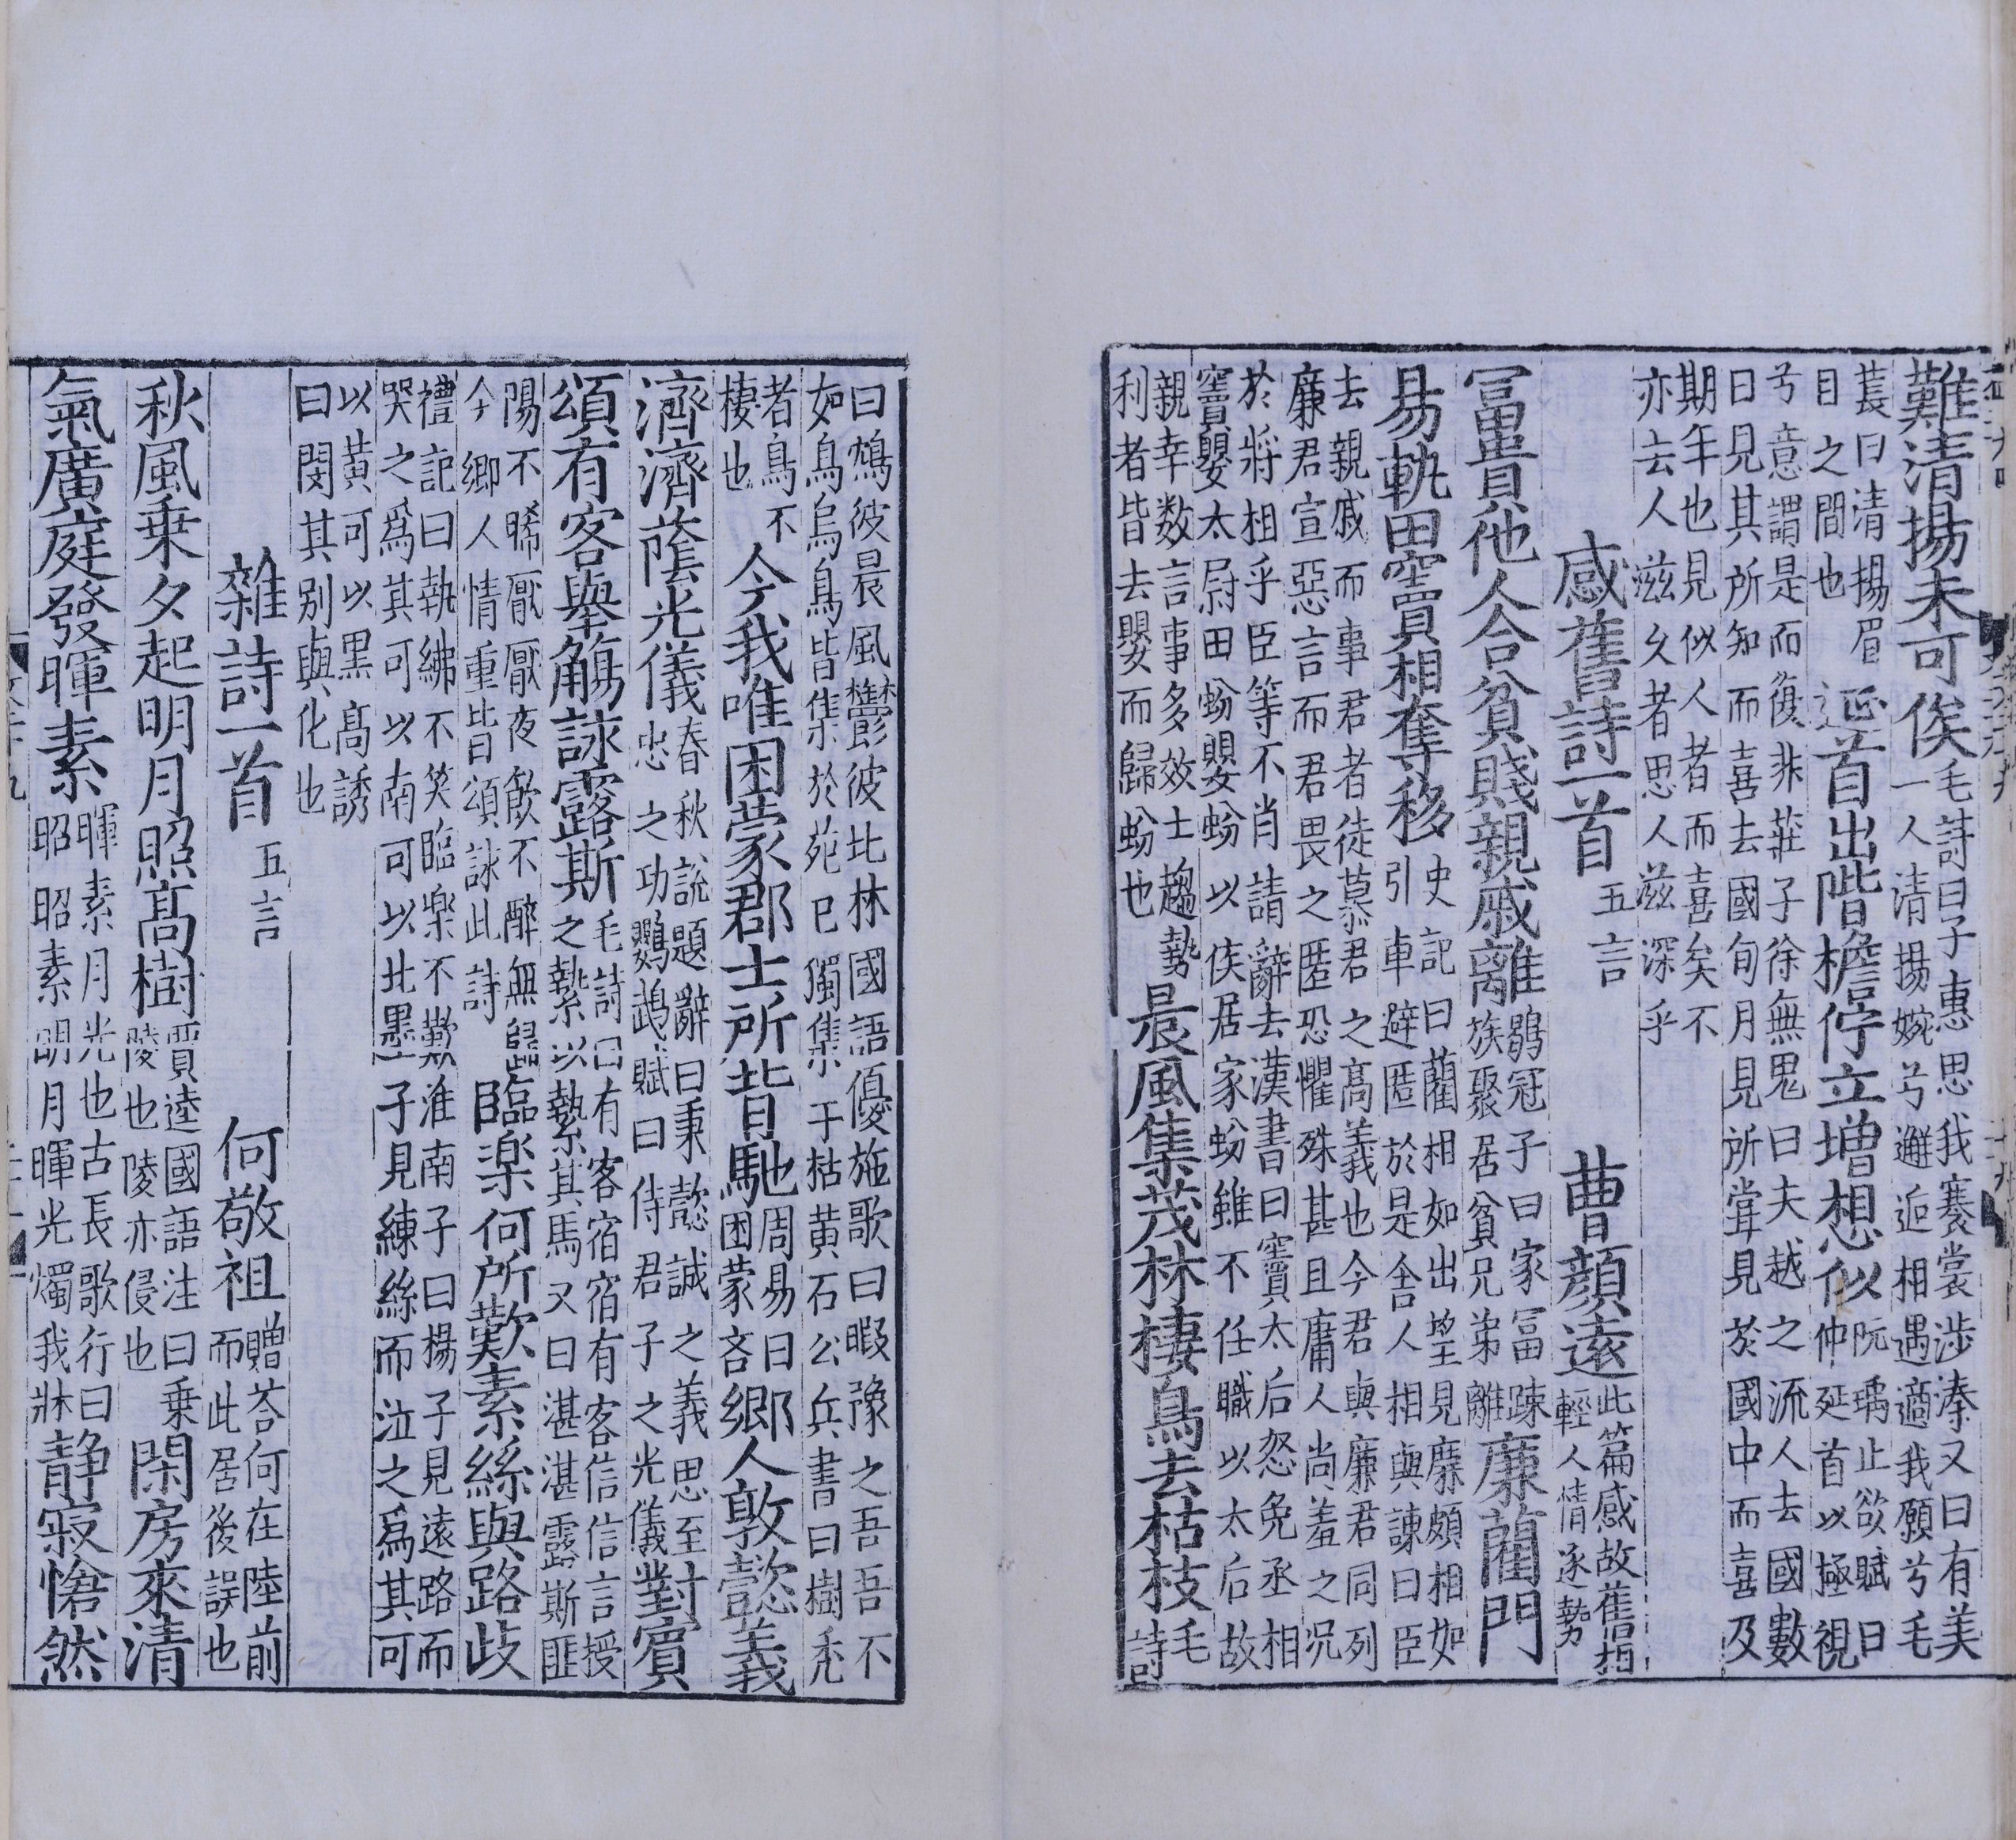 難清揚未可俟毛詩曰子惠思我褰裳涉溱又曰有美
一人清揚婉兮邂逅相遇適我願兮毛
萇曰清揚眉
目之間也延首出階檐佇立增想似阮瑀止欲賦曰
仲延首以極視
兮意謂是而復非莊子徐無鬼曰夫越之流人去國數
日見其所知而喜去國旬月見所甞見於國中而喜及
期年也見似人者而喜矣不
亦去人滋久者思人滋深乎
感舊詩一首五言 曹顔遠此篇感故舊相
輕人情逐勢
冨貴他人合貧賤親戚離鶡冠子曰家冨踈
族聚居貧兄弟離廉藺門
易軌田竇相奪移史記曰藺相如出望見廉頗相如
引車避匿於是舍人相與諫曰臣
去親戚而事君者徒慕君之高義也今君與廉君同列
廉君宣惡言而君畏之匿恐懼殊甚且庸人尚羞之况
於將相乎臣等不肖請辭去漢書曰竇太后怒免丞相
竇嬰太尉田蚡嬰蚡以侯居家蚡雖不任職以太后故
親幸数言事多效士趨勢
利者皆去嬰而歸蚡也晨風集茂林棲鳥去枯枝毛
詩
曰鴪彼晨風欝彼北林國語優施歌曰暇豫之吾吾不
如鳥烏鳥皆集於苑已獨集于枯黄石公兵書曰樹禿
者鳥不
棲也今我唯困蒙郡士所背馳周易曰
困蒙吝鄉人敦懿義
濟濟蔭光儀春秋說題辭曰秉懿誠之義思至
忠之功鸚鵡賦曰侍君子之光儀對賓
頌有客舉觴詠露斯毛詩曰有客宿宿有客信信言授
之縶以縶其馬又曰湛湛露斯匪
陽不晞厭厭夜飲不醉無歸
今鄉人情重皆頌詠此詩臨楽何所歎素絲與路歧
禮記曰執紼不笑臨楽不歎淮南子曰楊子見逵路而
哭之爲其可以南可以北墨子見練絲而泣之爲其可
以黄可以黑高誘
曰閔其别與化也
雜詩一首五言 何敬祖贈荅何在陸前
而此居後誤也
秋風乗夕起明月照高樹賈逵國語注曰乗
陵也陵亦侵也閑房來清
氣廣庭發暉素暉素月光也古長歌行曰
昭昭素明月暉光燭我牀静寂愴然